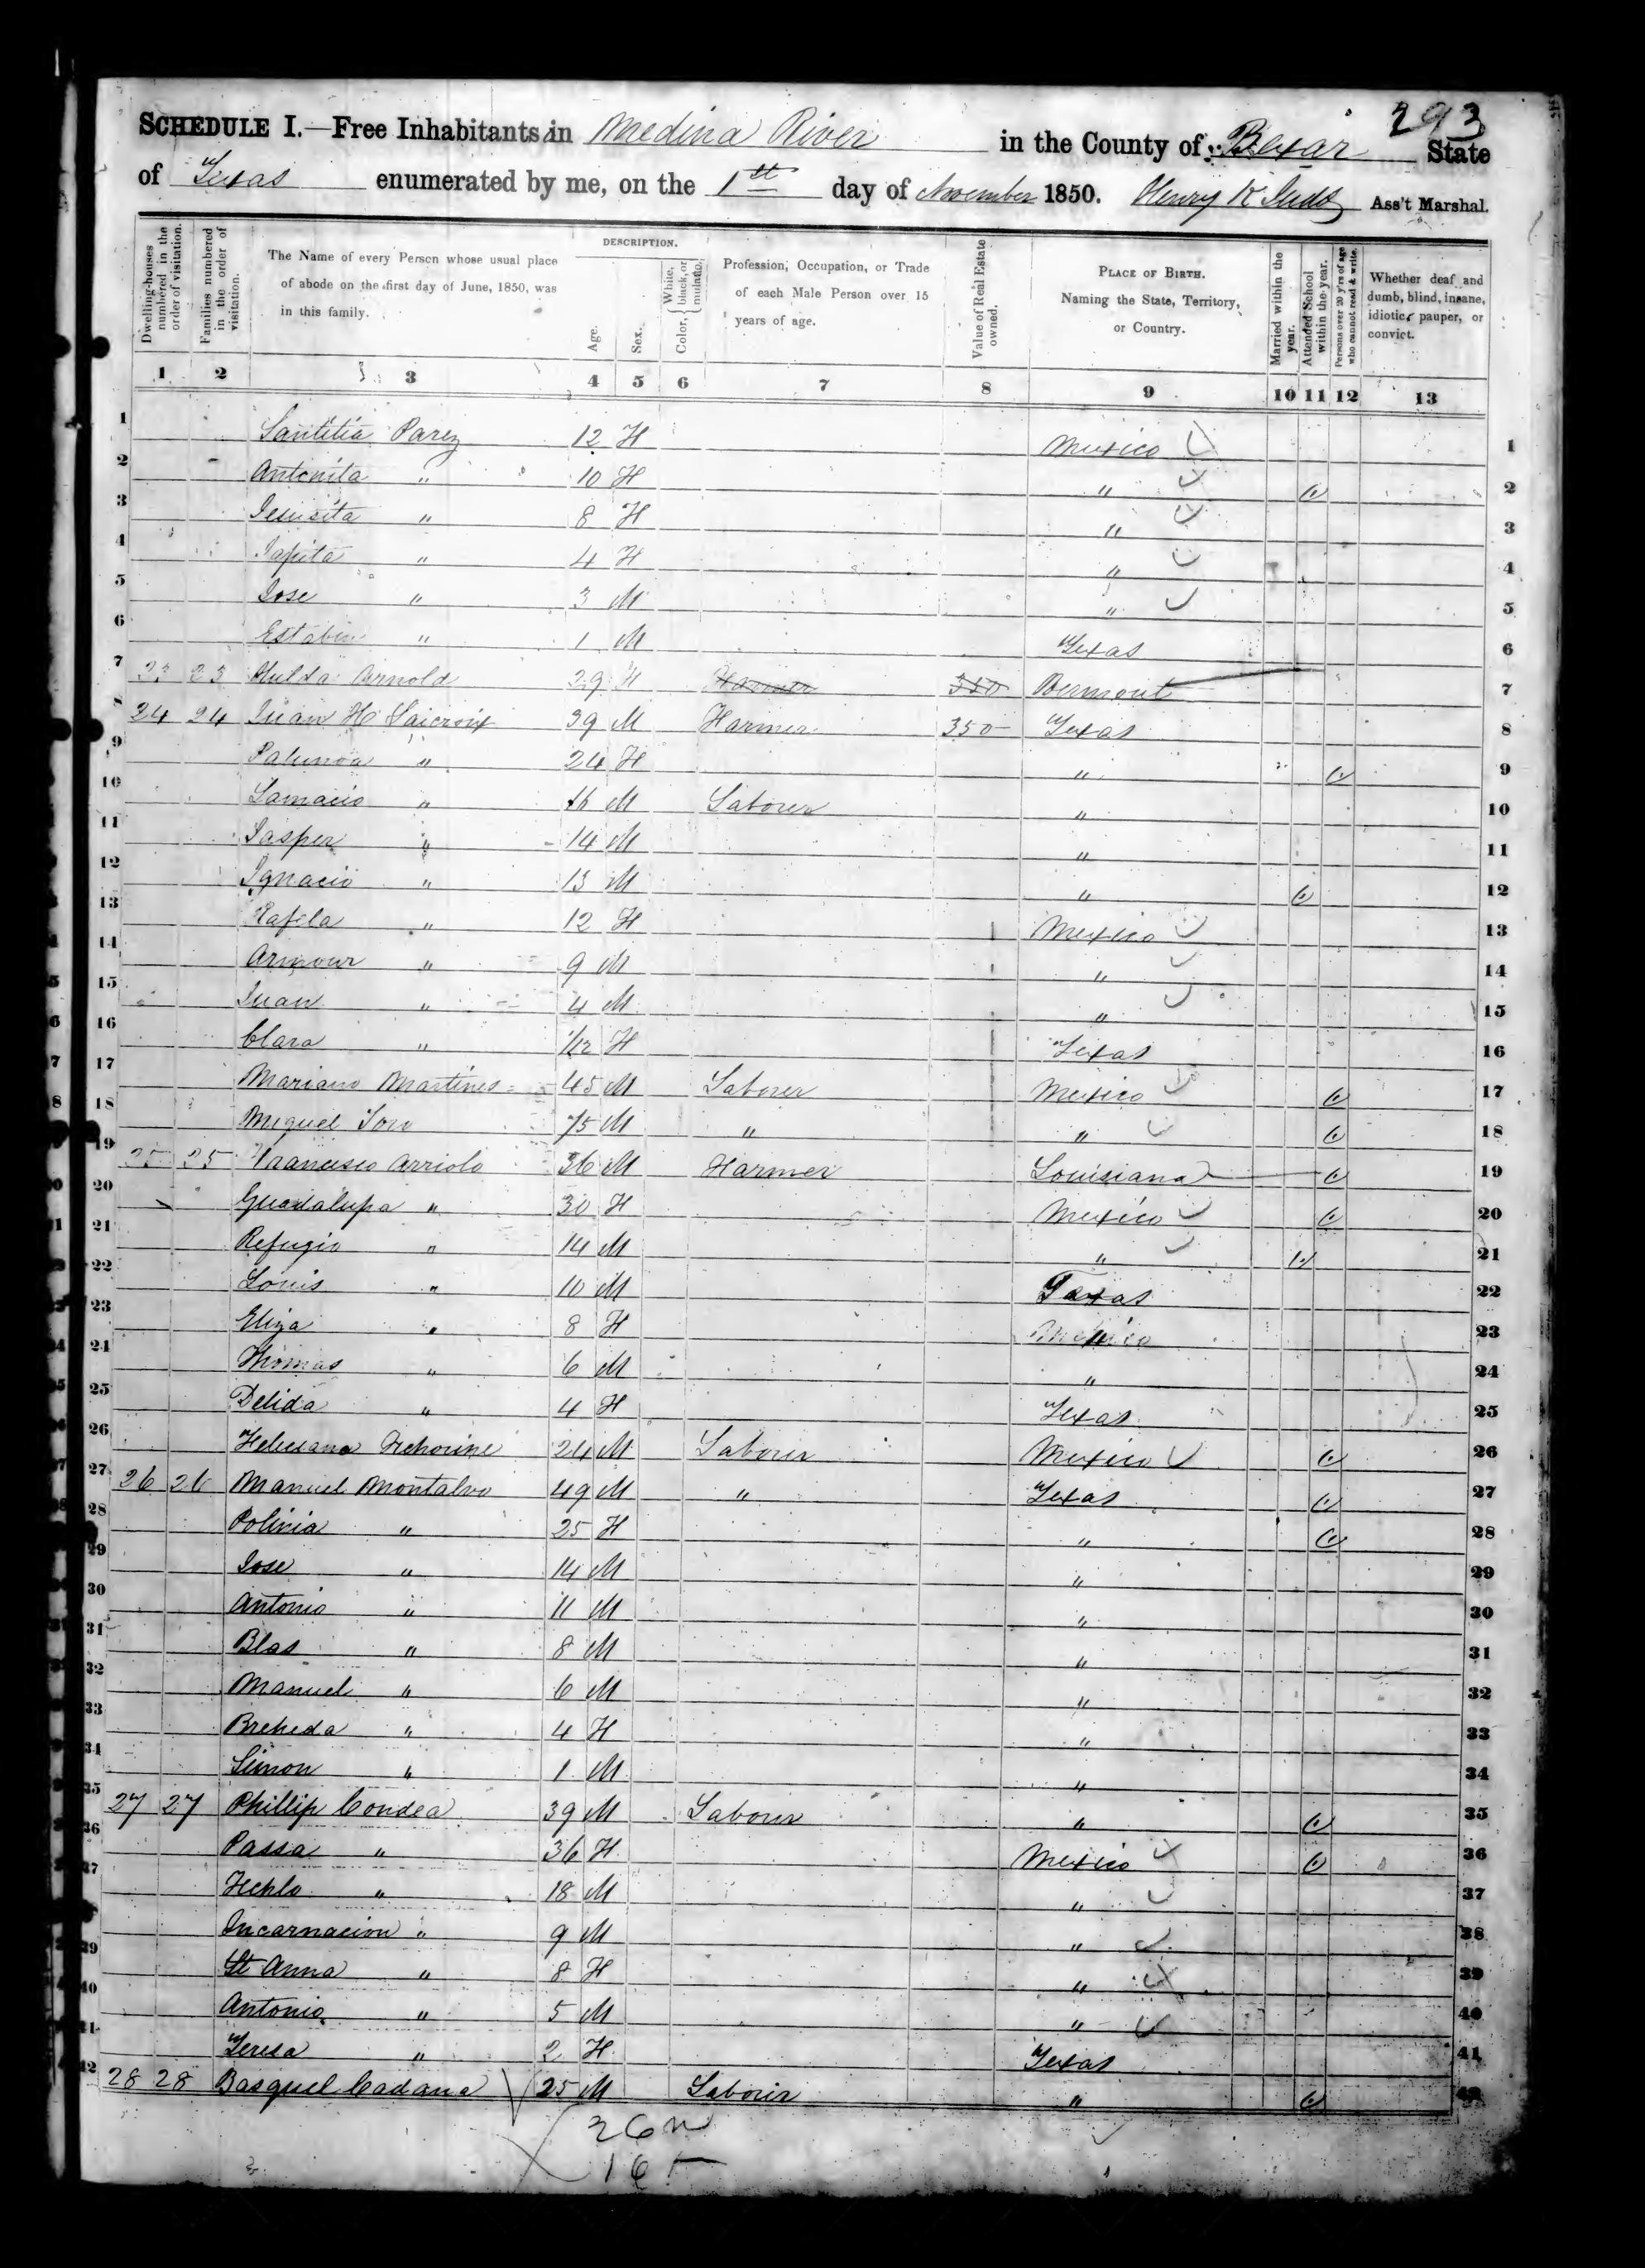 293
SCHEDULE I.—Free Inhabitants in Medina River in the County of Bexar State
of Texas enumerated by me, on the 1st day of November 1850. Henry K Judd Ass't Marshal.
Dwelling-houses numbered in the order of visitation.
Families numbered in the order of visitation.
The Name of every Person whose usual place of abode on the first day of June, 1850, was in this family.
DESCRIPTION.
Age.
Sex.
Color, { White, black, or mulatto.
Profession, Occupation, or Trade of each Male Person over 15 years of age.
Value of Real Estate owned.
PLACE OF BIRTH. Naming the State, Territory, or Country.
Married within the year.
Attended School within the year.
Persons over 20 y'rs of age who cannot read & write.
Whether deaf and dumb, blind, insane, idiotic, pauper, or convict.
1 2 3 4 5 6 7 8 9 10 11 12 13
1 Santitia Parez 12 F Mexico 1
2 Antonita " 10 F " 2
3 Jesusita " 8 F " 3
4 Japita " 4 F " 4
5 Jose " 3 M " 5
6 Estabin " 1 M Texas 6
7 23 23 Hulda Arnold 29 F Farmer 350 Vermont 7
8 24 24 Juan H 39 M Farmer 350 Texas 8
9 " 24 F " 9
10 " 16 M Laborer " 10
11 Jasper " 14 M " 11
12 Ignacio " 13 M " 12
13 Rafela " 12 F Mexico 13
14 Armour " 9 M " 14
15 Juan " 4 M " 15
16 Clara " 1/12 F Texas 16
17 Mariano Martines 45 M Laborer Mexico 17
18 Miguel 75 M " " 18
19 25 25 Francisco Arriola 36 M Farmer Louisiana 19
20 Guadalupa " 30 F Mexico 20
21 Refugio " 14 M " 21
22 Louis " 10 M Texas 22
23 Eliza " 8 F Mexico 23
24 Thomas " 6 M " 24
25 Delida " 4 F Texas 25
26 24 M Laborer Mexico 26
27 26 26 Manuel Montalvo 49 M " Texas 27
28 Polinia " 25 F " 28
29 Jose " 14 M " 29
30 Antonio " 11 M " 30
31 Blas " 8 M " 31
32 Manuel " 6 M " 32
33 " 4 F " 33
34 Simon " 1 M " 34
35 27 27 Phillip Condea 39 M Laborer " 35
36 Passa " 36 F Mexico 36
37 " 18 M " 37
Incarnacion " 9 M " 38
39 St Anna " 8 F " 39
40 Antonio " 5 M " 40
41 Teresa " 2 F Texas 41
42 28 28 Basquel Cadana 25 M Laborer " 42
26 m
16 f